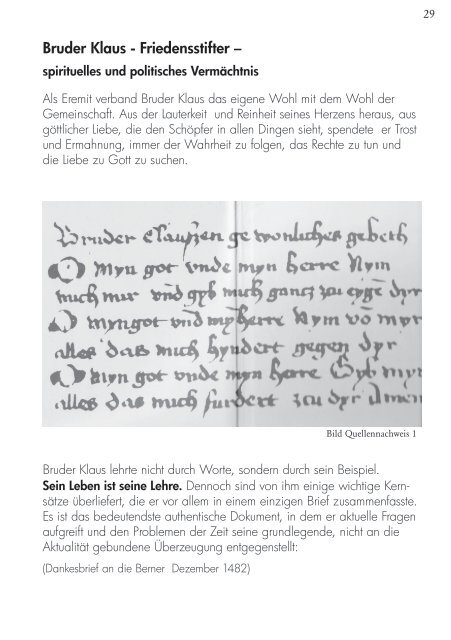 29
Bruder Klaus - Friedensstifter –
spirituelles und politisches Vermächtnis
Als Eremit verband Bruder Klaus das eigene Wohl mit dem Wohl der
Gemeinschaft. Aus der Lauterkeit und Reinheit seines Herzens heraus, aus
göttlicher Liebe, die den Schöpfer in allen Dingen sieht, spendete er Trost
und Ermahnung, immer der Wahrheit zu folgen, das Rechte zu tun und
die Liebe zu Gott zu suchen.
Bruder claußen gewonliches gebeth
O myn got vnde myn herre Nym
mich mir vnd gyb mich gancz zu eyge dyr
O myngot vnd my herre Nym vo myr
alles das mich hyndert gegen dyr
O myn got vnde myn herre Gyb myr
alles das mich furdert zu dyr
Bild Quellennachweis 1
Bruder Klaus lehrte nicht durch Worte, sondern durch sein Beispiel.
Sein Leben ist seine Lehre. Dennoch sind von ihm einige wichtige Kern-
sätze überliefert, die er vor allem in einem einzigen Brief zusammenfasste.
Es ist das bedeutendste authentische Dokument, in dem er aktuelle Fragen
aufgreift und den Problemen der Zeit seine grundlegende, nicht an die
Aktualität gebundene Überzeugung entgegenstellt:
(Dankesbrief an die Berner Dezember 1482)